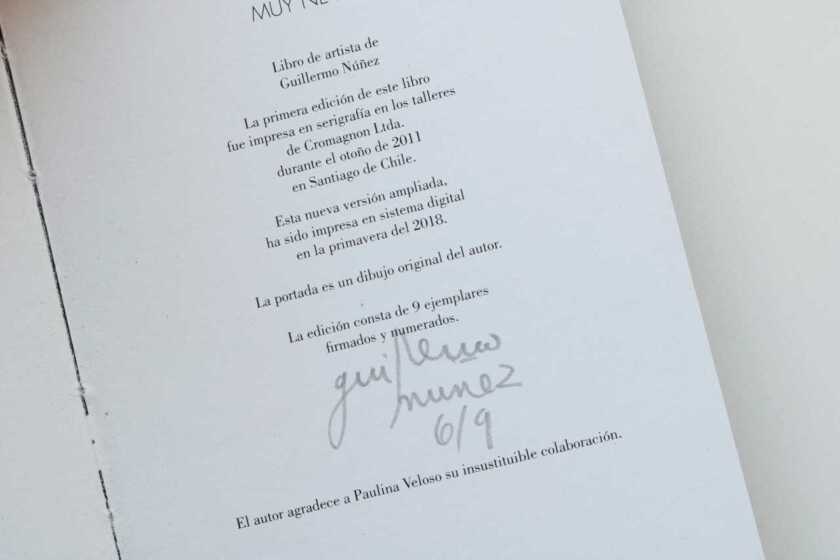 MUY
Libro de artista de
Guillermo Núñez
La primera edición de este libro
fue impresa en serigrafía en los talleres
de Cromagnon Ltda.
durante el otoño de 2011
en Santiago de Chile.
Esta nueva versión ampliada,
ha sido impresa en sistema digital
en la primavera del 2018.
La portada es un dibujo original del autor.
La edición consta de 9 ejemplares
firmados y numerados.
guillermo
nunez
6/9
El autor agradece a Paulina Veloso su insustituíble colaboración.